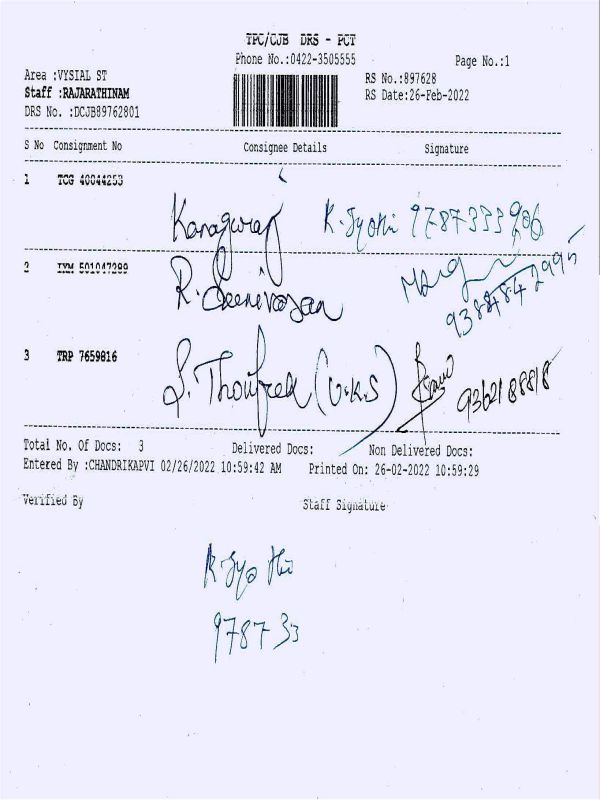 TPC/CJB DRS - PCT
Phone No.:0422-3505555
Page No.:1
Area :VYSIAL ST
RS No.:897628
Staff :RAJARATHINAM
RS Date:26-Feb-2022
DRS No. :DCJB89762801
S No Consignment No Consignee Details Signature
1 TCG 40044253
Kanagaraj K. Jyothi 9787333906
2 IXM 501047289
R. Seenivasan 9384842995
3 TRP 7659816
S. Thoufeek (U.K.S) 9362188818
Total No. Of Docs: 3 Delivered Docs: Non Delivered Docs:
Entered By :CHANDRIKAPVI 02/26/2022 10:59:42 AM Printed On: 26-02-2022 10:59:29
Verified By Staff Signature
K. Jyothi
978733